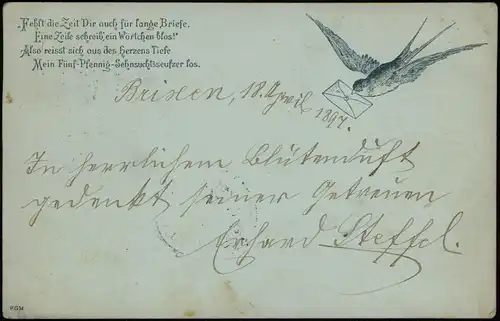 „Fehlt die Zeit Dir auch für lange Briefe,
Eine Zeile schreib, ein Wörtchen blos!“
Also reisst sich aus des Herzens Tiefe
Mein Fünf-Pfennig-Sehnsuchtsseufzer los.
Brixen, 18. April 1897.
In herrlichem Blütenduft
gedenkt seiner Getreuen
Erhard Steffel.
VGM